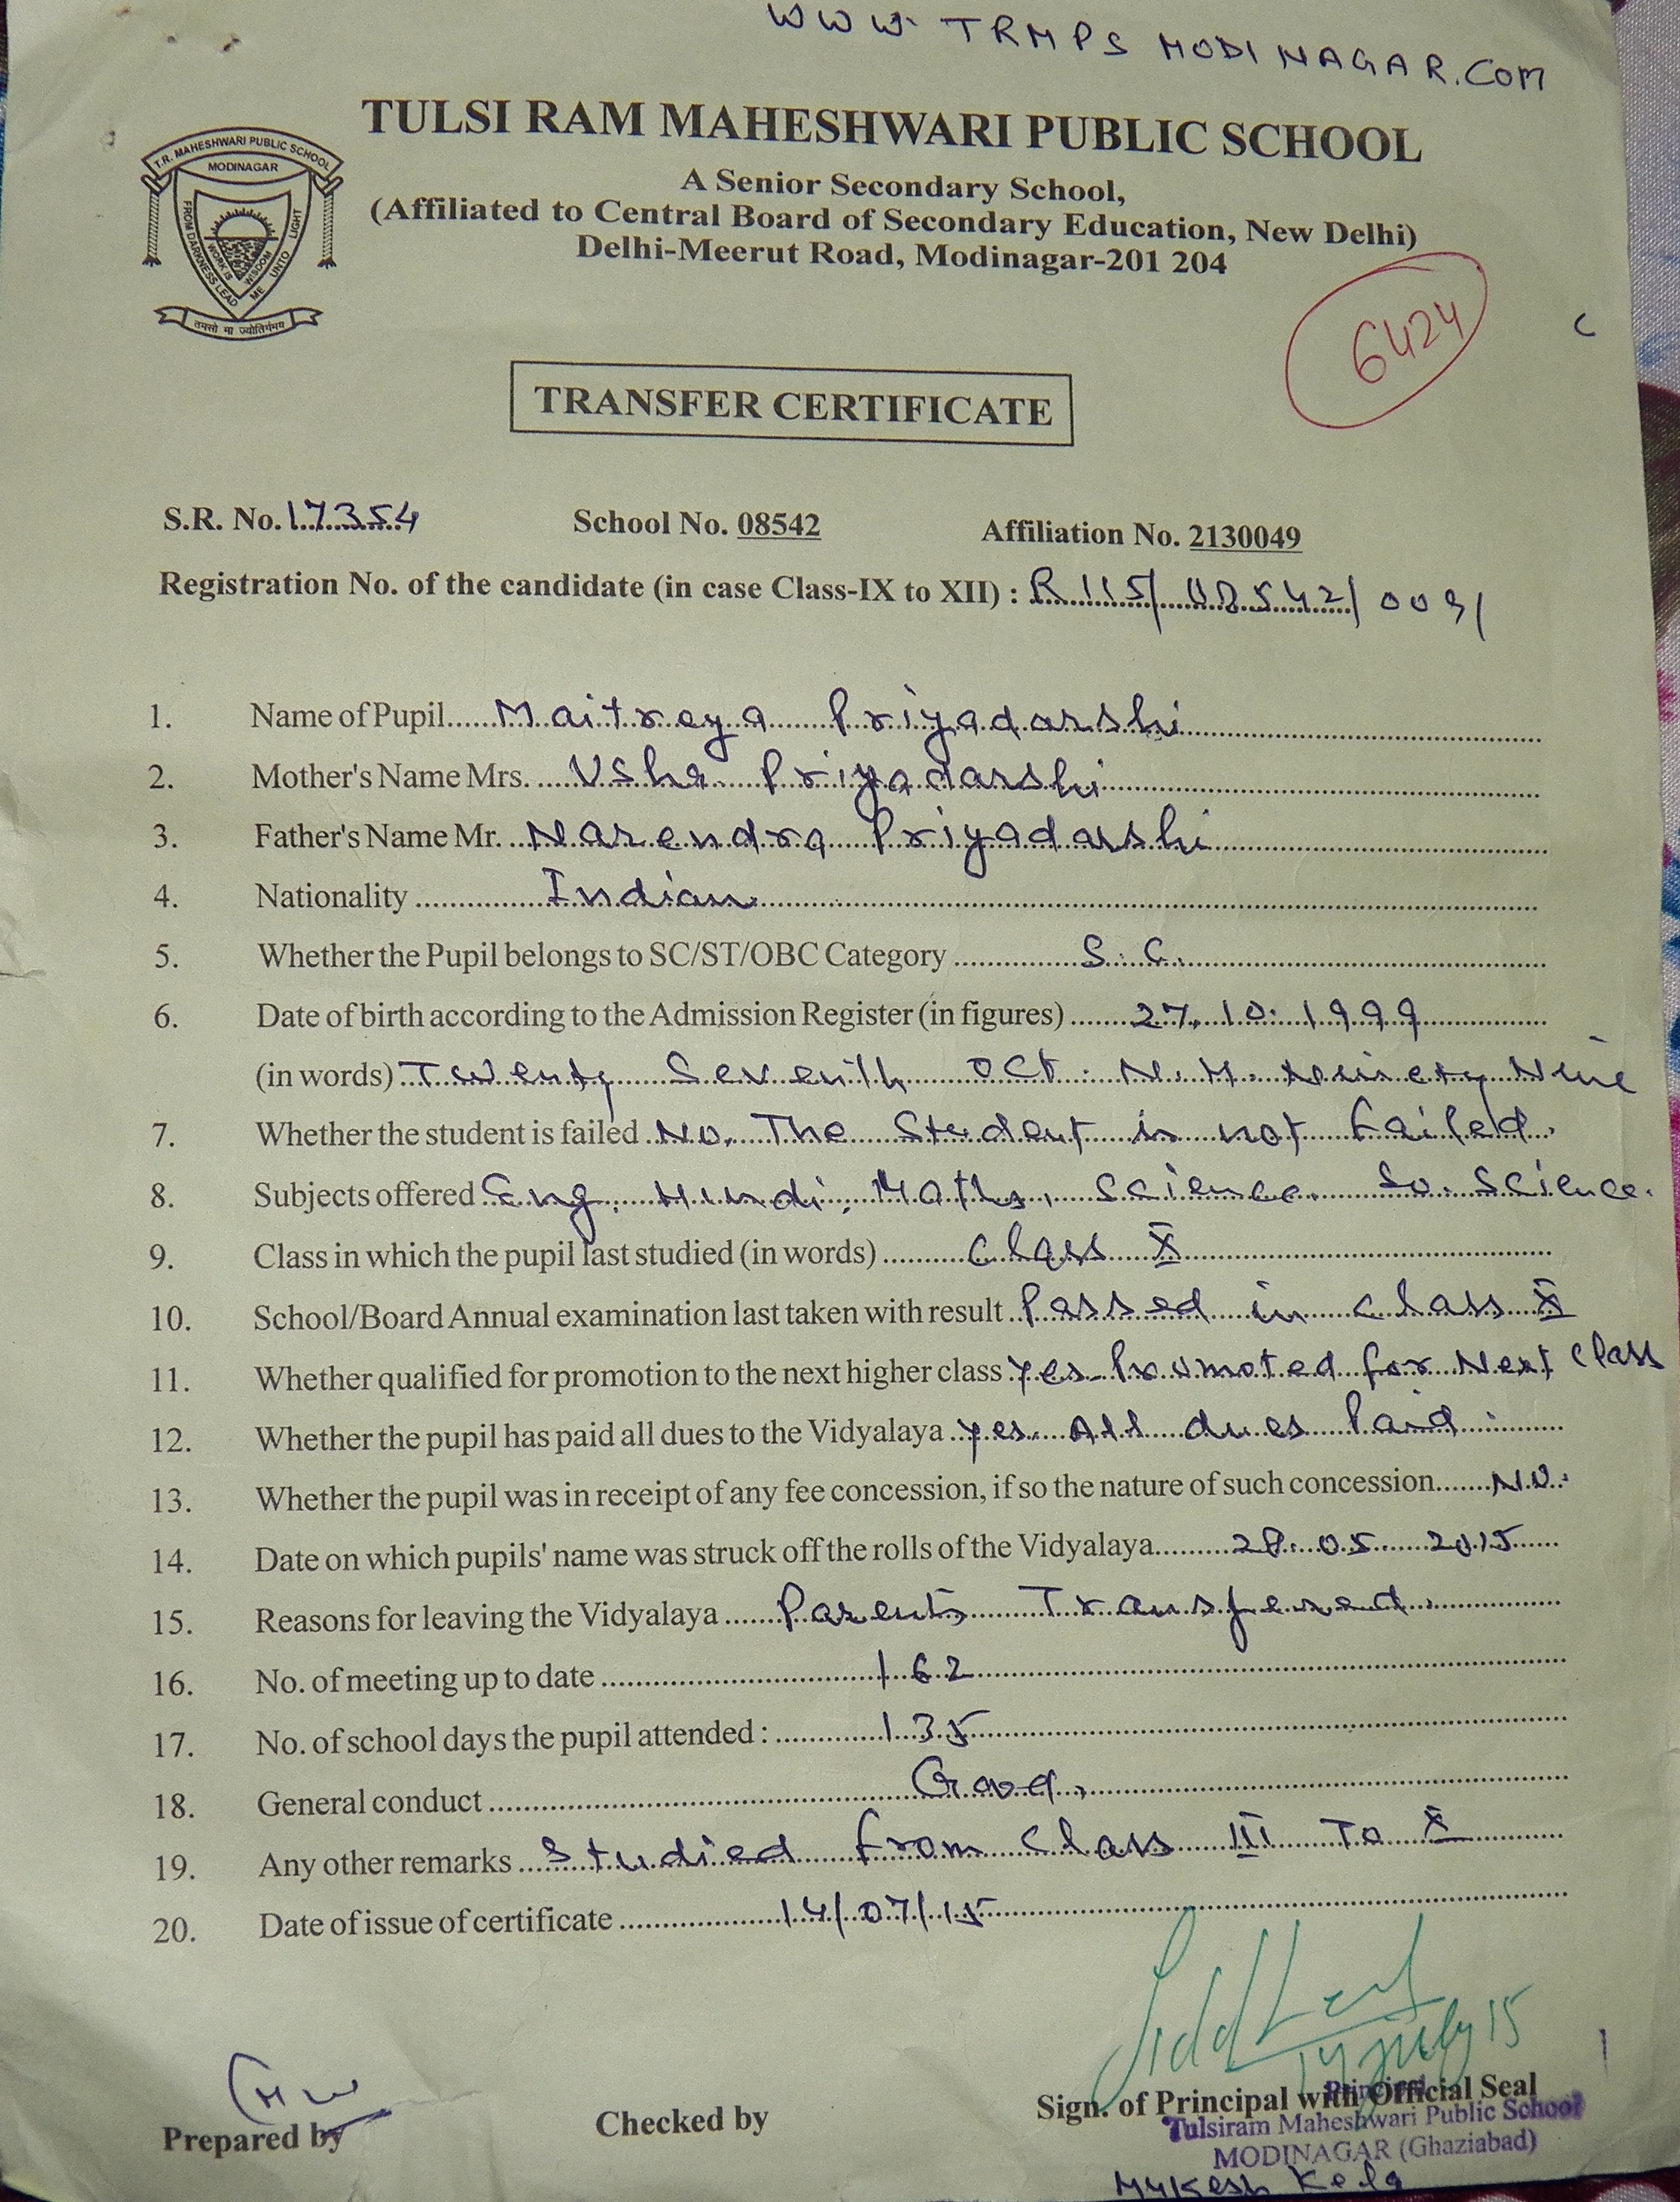 WWW. TRMPS MODINAGAR.COM
TULSI RAM MAHESHWARI PUBLIC SCHOOL
T.R. MAHESHWARI PUBLIC SCHOOL
MODINAGAR
FROM DARKNESS LEAD ME UNTO LIGHT
WORK IS WISDOM
तमसो मा ज्योतिर्गमय
A Senior Secondary School,
(Affiliated to Central Board of Secondary Education, New Delhi)
Delhi-Meerut Road, Modinagar-201 204
6424
TRANSFER CERTIFICATE
S.R. No. 17354 School No. 08542 Affiliation No. 2130049
Registration No. of the candidate (in case Class-IX to XII) : R115/08542/0091
1. Name of Pupil Maitreya Priyadarshi
2. Mother's Name Mrs. Usha Priyadarshi
3. Father's Name Mr. Narendra Priyadarshi
4. Nationality Indian
5. Whether the Pupil belongs to SC/ST/OBC Category S.C.
6. Date of birth according to the Admission Register (in figures) 27.10.1999
(in words) Twenty Seventh Oct. N.H. Ninety Nine
7. Whether the student is failed No. The Student is not failed.
8. Subjects offered Eng. Hindi, Maths, Science. So. Science.
9. Class in which the pupil last studied (in words) Class X
10. School/Board Annual examination last taken with result Passed in class X
11. Whether qualified for promotion to the next higher class Yes. Promoted for Next Class
12. Whether the pupil has paid all dues to the Vidyalaya Yes. All dues Paid.
13. Whether the pupil was in receipt of any fee concession, if so the nature of such concession No.
14. Date on which pupils' name was struck off the rolls of the Vidyalaya 28.05.2015
15. Reasons for leaving the Vidyalaya Parents Transfered.
16. No. of meeting up to date 162
17. No. of school days the pupil attended : 135
18. General conduct Good.
19. Any other remarks Studied from Class III To X
20. Date of issue of certificate 14/07/15
14 July 15
Prepared by Checked by Sign. of Principal with Official Seal
Principal
Tulsiram Maheshwari Public School
MODINAGAR (Ghaziabad)
Mukesh